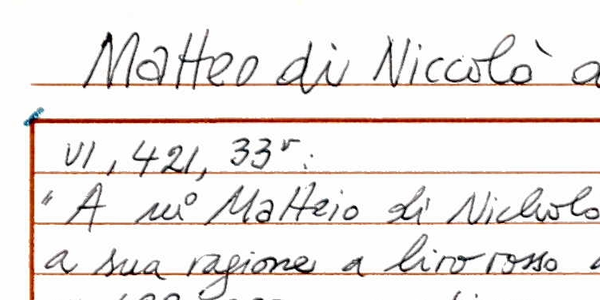 Matteo di Niccolò a
VI, 421, 33r:
"A mº Matteio di Nicholo
a sua ragione a liro rosso